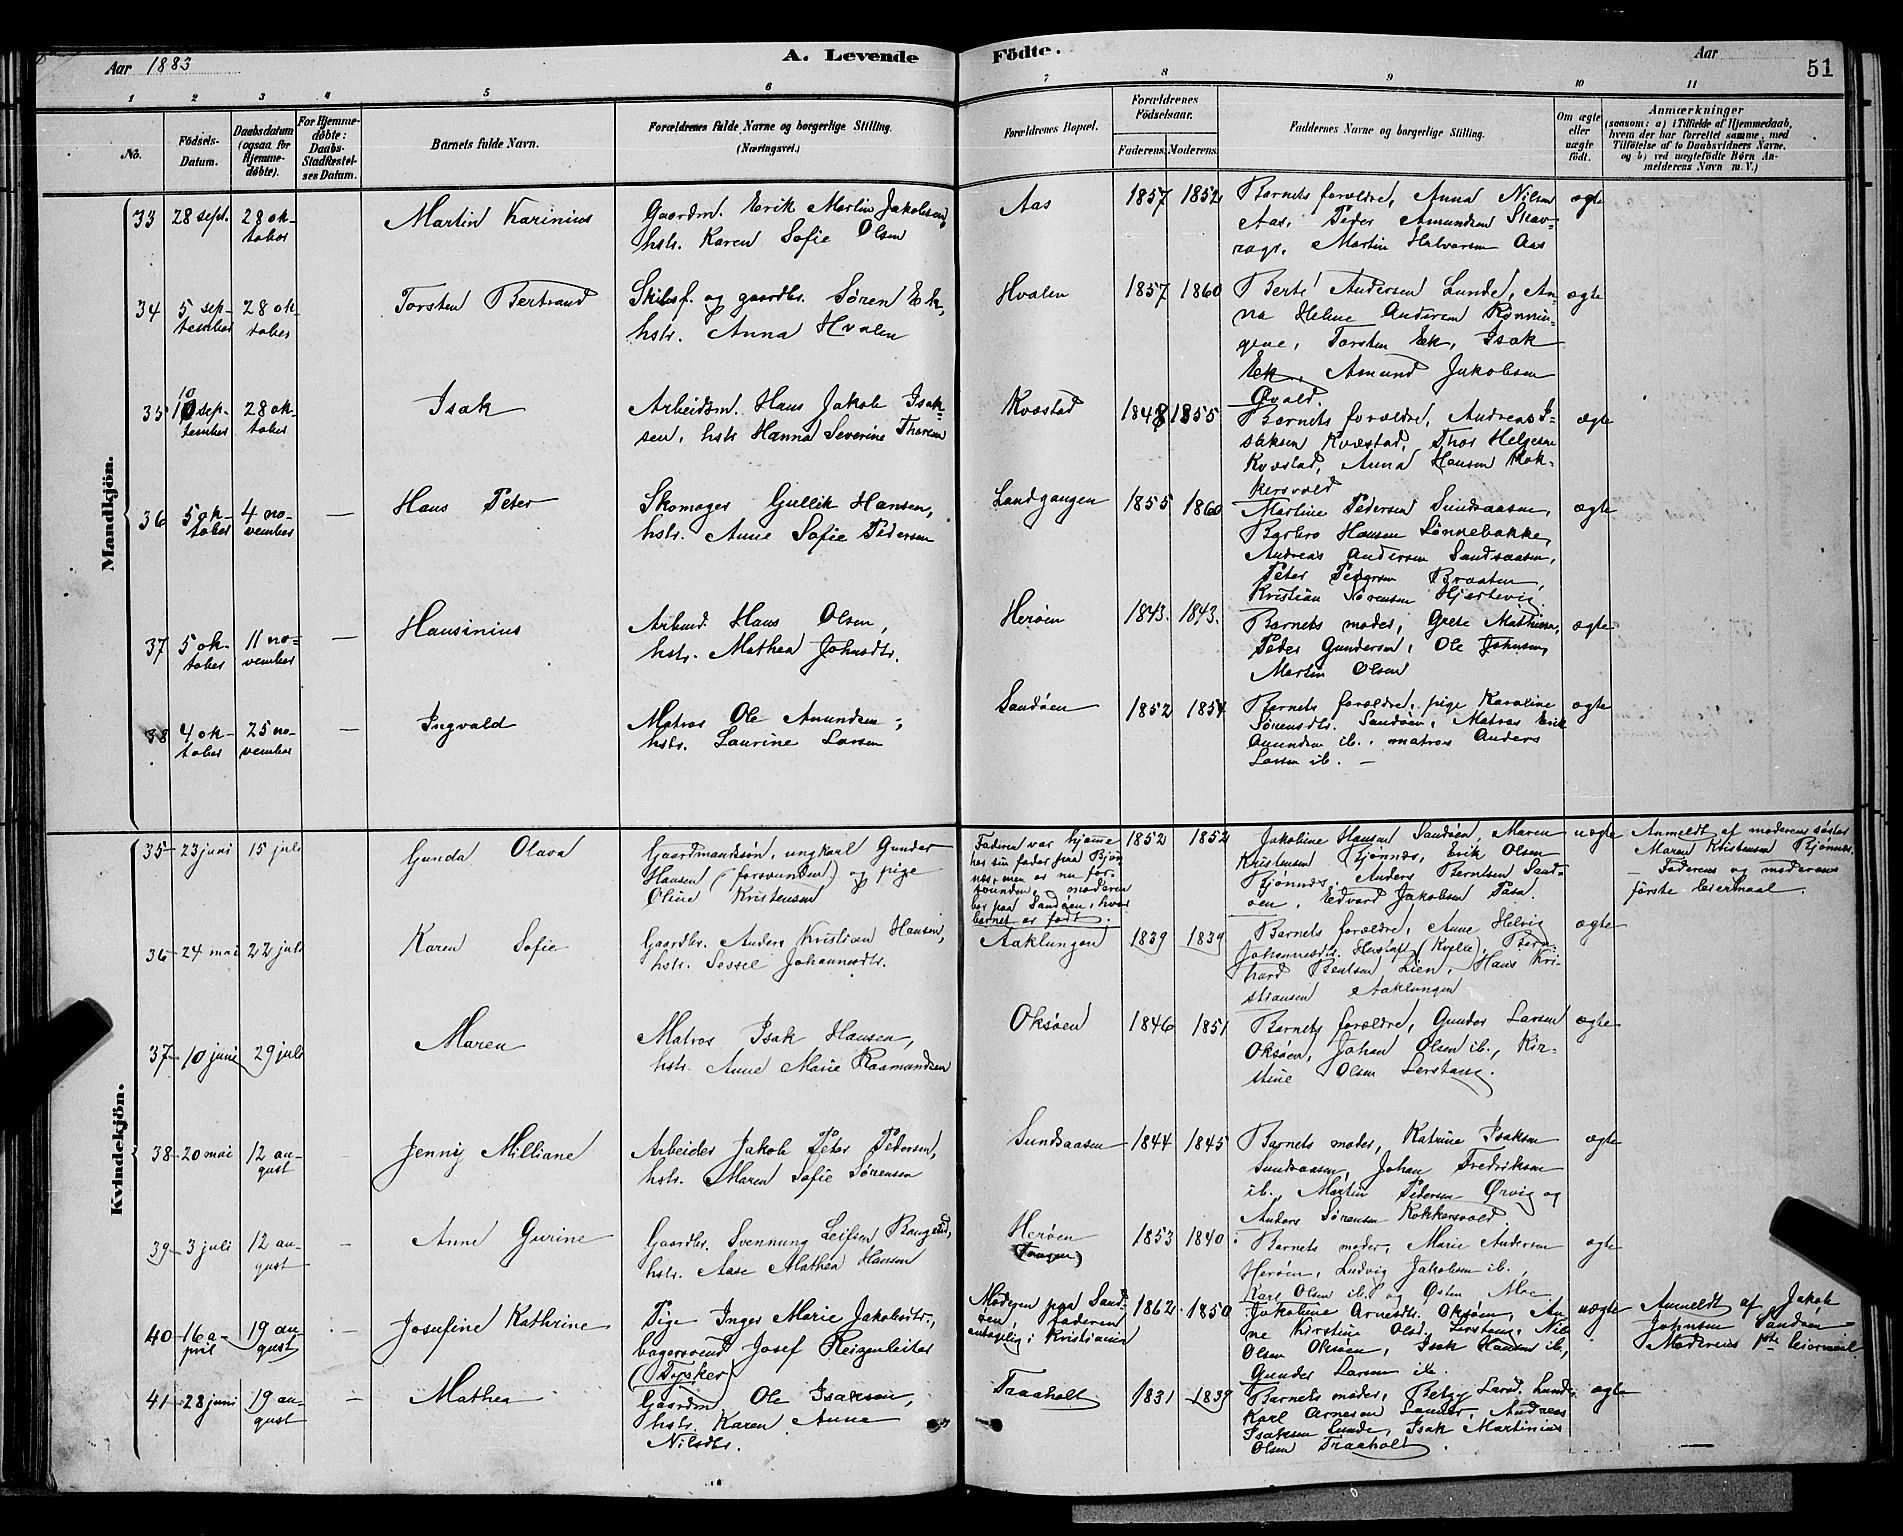 Aar 1883
A. Levende
Födte.
Aar
51
1 2 3 4 5 6 7 8 9 10 11
No.
Födsels-
Datum.
Daabsdatum
(ogsaa for
Hjemme-
döbte).
For Hjemme-
döbte:
Daabs-
Stadfæstel-
ses Datum.
Barnets fulde Navn.
Forældrenes fulde Navne og borgerlige Stilling.
(Næringsvei.)
Forældrenes Bopæl.
Forældrenes
Födselsaar.
Faderens. Moderens.
Faddernes Navne og borgerlige Stilling.
Om ægte
eller
uægte
födt.
Anmærkninger
(saasom: a) i Tilfælde af Hjemmedaab,
hvem der har forrettet samme, med
Tilföielse af to Daabsvidners Navne,
og b) ved uægtefödte Börn An-
melderens Navn m. V.)
Mandkjön.
33 28 sept. 28 ok-
tober
Martin Karinius
Gaardm. Erik Martin Jakobsen,
hstr. Karen Sofie Olsen
Aas
1857 1852
Barnets forældre, Anna Nilsen
Aas, Peder Amundsen Skav-
rager, Martin Halvorsen Aas
ægte
34 5 sep-
tember
28 ok-
tober
Torsten Bertrand
Skibsf. og gaardbr. Søren Ek,
hstr. Anna Hvalen
Hvalen
1857 1860
Berte Andersen Lunde, An-
na Helene Andersen Rønnin-
gene, Torsten Ek, Isak
Ek, Amund Jakobsen
Øvald.
ægte
35 10 sep-
tember
28 ok-
tober
Isak
Arbeidsm. Hans Jakob Isak-
sen, hstr. Hanna Severine Thoresen
Kvæstad
1848 1855
Barnets forældre, Andreas I-
saksen Kvæstad, Thor Helgesen
Kvæstad, Anna Hansen Kok-
kersvold
ægte
36 5 ok-
tober
4 no-
vember
—
Hans Peter
Skomager Gullik Hansen,
hstr. Anne Sofie Pedersen
Landgangen
1855 1860
Martine Pedersen Sundsaasen,
Barbro Hansen Lønnebakke,
Andreas Andersen Sundsaasen,
Peter Pedersen Braaten,
Kristian Sørensen Hjertevig
ægte
37 5 ok-
tober
11 no-
vember
—
Hansinius
Arbmd. Hans Olsen,
hstr. Mathea Johnsdtr.
Herøen
1843. 1843.
Barnets moder, Grete Mathisen,
Peder Gundersen, Ole Johnsen,
Martin Olsen
ægte
38 4 ok-
tober
25 no-
vember
—
Ingvald
Matros Ole Amundsen,
hstr. Laurine Larsen
Sandøen
1852 1854
Barnets forældre, pige Karoline
Sørensdtr. Sandøen, Matros Erik
Amundsen ib., matros Anders
Larsen ib. —
ægte
Kvindekjön.
35 23 juni 15 juli
Gunda Olava
Gaardmandssøn, ungkarl Gunder
Hansen (forsvunden) og pige
Oline Kristensen
Faderen var hjemme
hos sin fader paa Bjøn-
næs, men er nu for-
svunden, moderen
bor paa Sandøen, hvor
barnet er født.
1852 1852
Jakobine Hansen Sandøen, Maren
Kristensen Bjønnæs, Erik Olsen
Bjønnæs, Anders Berntsen Sand-
øen, Edvard Jakobsen Pasa
uægte
Anmeldt af moderens søster
Maren Kristensen Bjønnæs.
— Faderens og moderens
første leiermaal.
36 24 mai 22 juli
Karen Sofie
Gaardbr. Anders Kristian Hansen,
hstr. Sessel Johannesdtr.
Aaklungen
1839 1839
Barnets forældre, Anne Helvig
Johannesdtr. Herstad (Kvelle), Bern-
hard Bentsen Lien, Hans Kri-
stiansen Aaklungen
ægte
37 10 juni 29 juli
Maren
Matros Isak Hansen,
hstr. Anne Marie Raamundsen
Oksøen
1846 1851
Barnets forældre, Gunder Larsen
Oksøen, Johan Olsen ib., Kir-
stine Olsen Lerstang.
ægte
38 20 mai 12 au-
gust
Jenny Milliane
Arbeider Jakob Peter Pedersen,
hstr. Maren Sofie Sørensen
Sundsaasen
1844 1845
Barnets moder, Katrine Isaksen
Sundsaasen, Johan Fredriksen
ib., Martin Pedersen Ørvig og
Anders Sørensen Kokkersvold
ægte
39 3 juli 12 au-
gust
—
Anne Gurine
Gaardbr. Svennung Leifsen Baugerød,
hstr. Aase Mathea Hansen
Herøen
(Tangen)
1853 1840
Barnets moder, Marie Andersen
Herøen, Ludvig Jakobsen ib.,
Karl Olsen ib. og Østen Moe
ægte
40 16 a-
pril
19 au-
gust
—
Josefine Kathrine
Pige Inger Marie Jakobsdtr.,
bagersvend Josef Reizenleiter
(Tysker)
Moderen paa Sand-
øen, faderen
antagelig i Kristiania
1862 1850
Jakobine Arnesdtr. Oksøen, An-
ne Kirstine Olsd. Lerstang, Nils
Olsen Oksøen, Isak Hansen ib.,
Gunder Larsen ib.
uægte
Anmeldt af Jakob
Johnsen Sandøen
Moderens 1ste leiermaal
41 28 juni 19 au-
gust
—
Mathea
Gaardm. Ole Isaksen,
hstr. Karen Anne
Nilsdtr.
Traaholt
1831 1839
Barnets moder, Betzy Larsd. Lunde,
Karl Arnesen Lunder, Andreas
Isaksen Lunde, Isak Martinius
Olsen Traaholt.
ægte
—